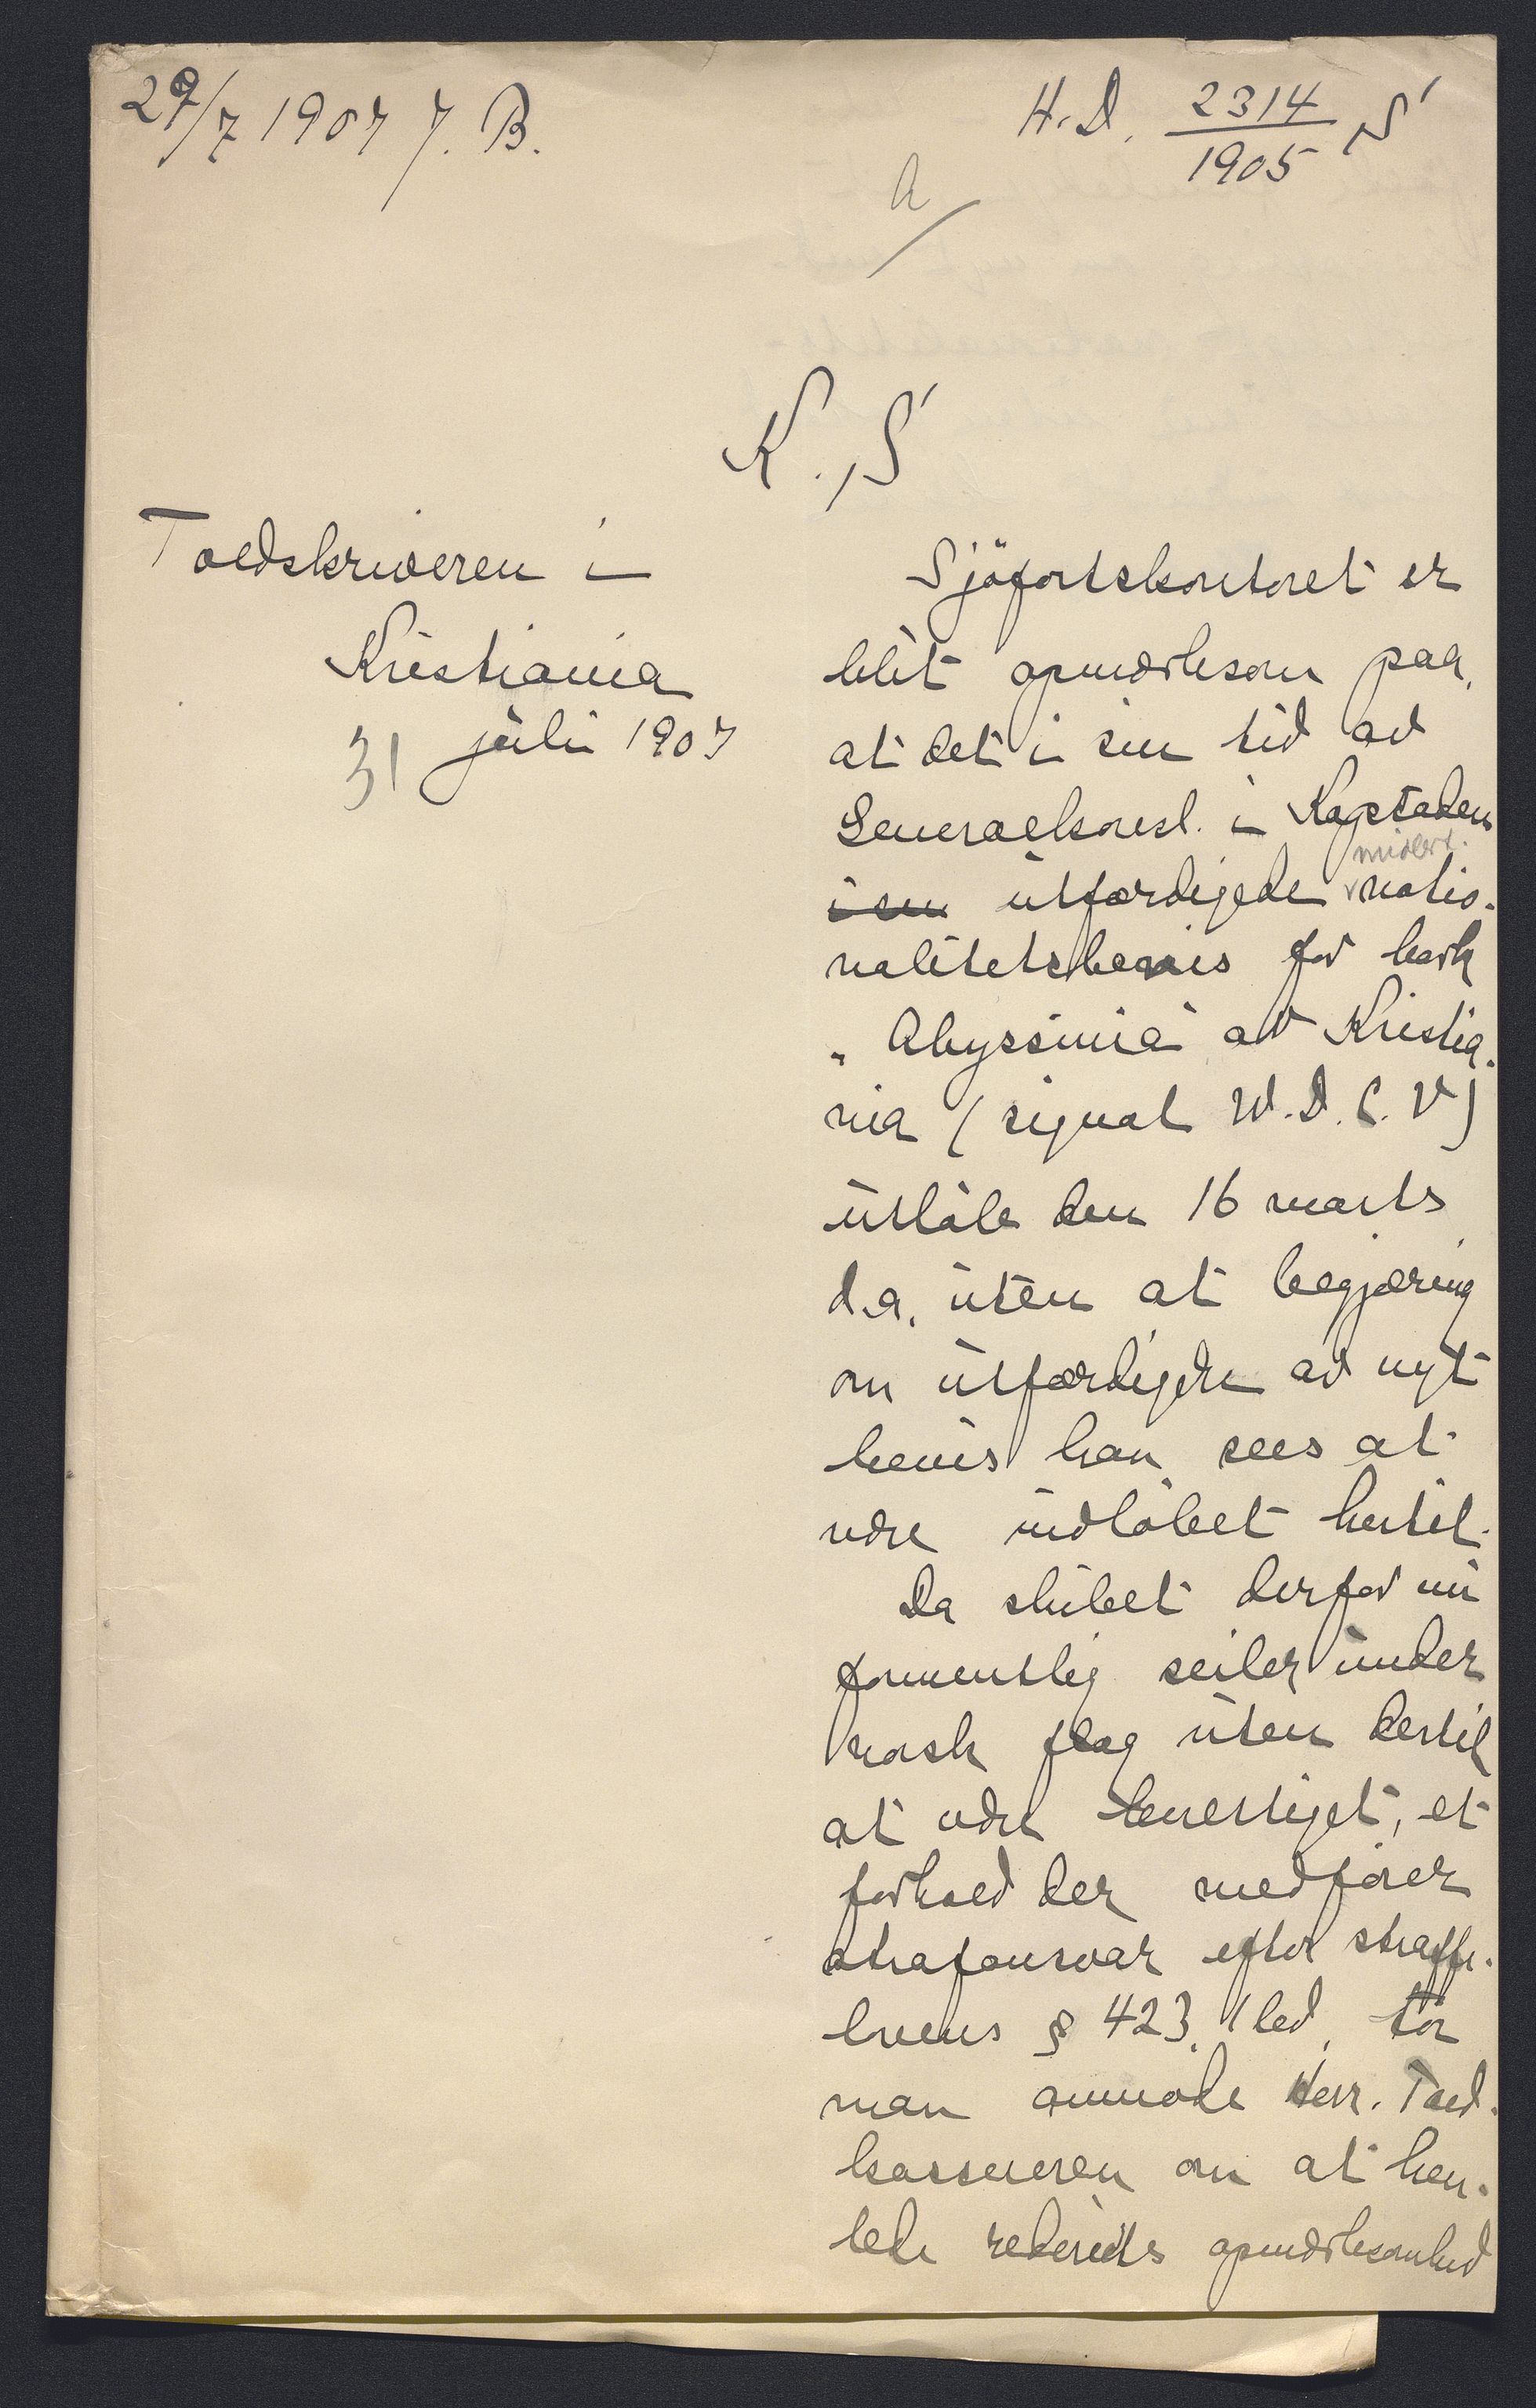 29/7 1907 J. B.
H. D. 2314/1905 S
a/
K. S
Toldskriveren i
Kristiania
31 juli 1907
Sjöfartskontoret er
blit opmerksom paa,
at det i sin tid av
Generalkonsl. i Kapstaden
i sin utfærdigede midlert. natio-
nalitetsbevis for bark
„Abyssinia" av Kristia-
nia (signal W. D. C. V)
utløb den 16 marts
d.a. uten at begjæring
om utfærdigelse av nyt
bevis kan sees at
være indløbet hertil.
Da skibet derfor nu
formentlig seiler under
norsk flag uten dertil
at være berettiget, et
forhold der medfører
strafansvar efter straffe-
lovens § 423, 1 led, tør
man anmode Herr. Told-
kassereren om at hen-
lede rederiets opmerksomhed